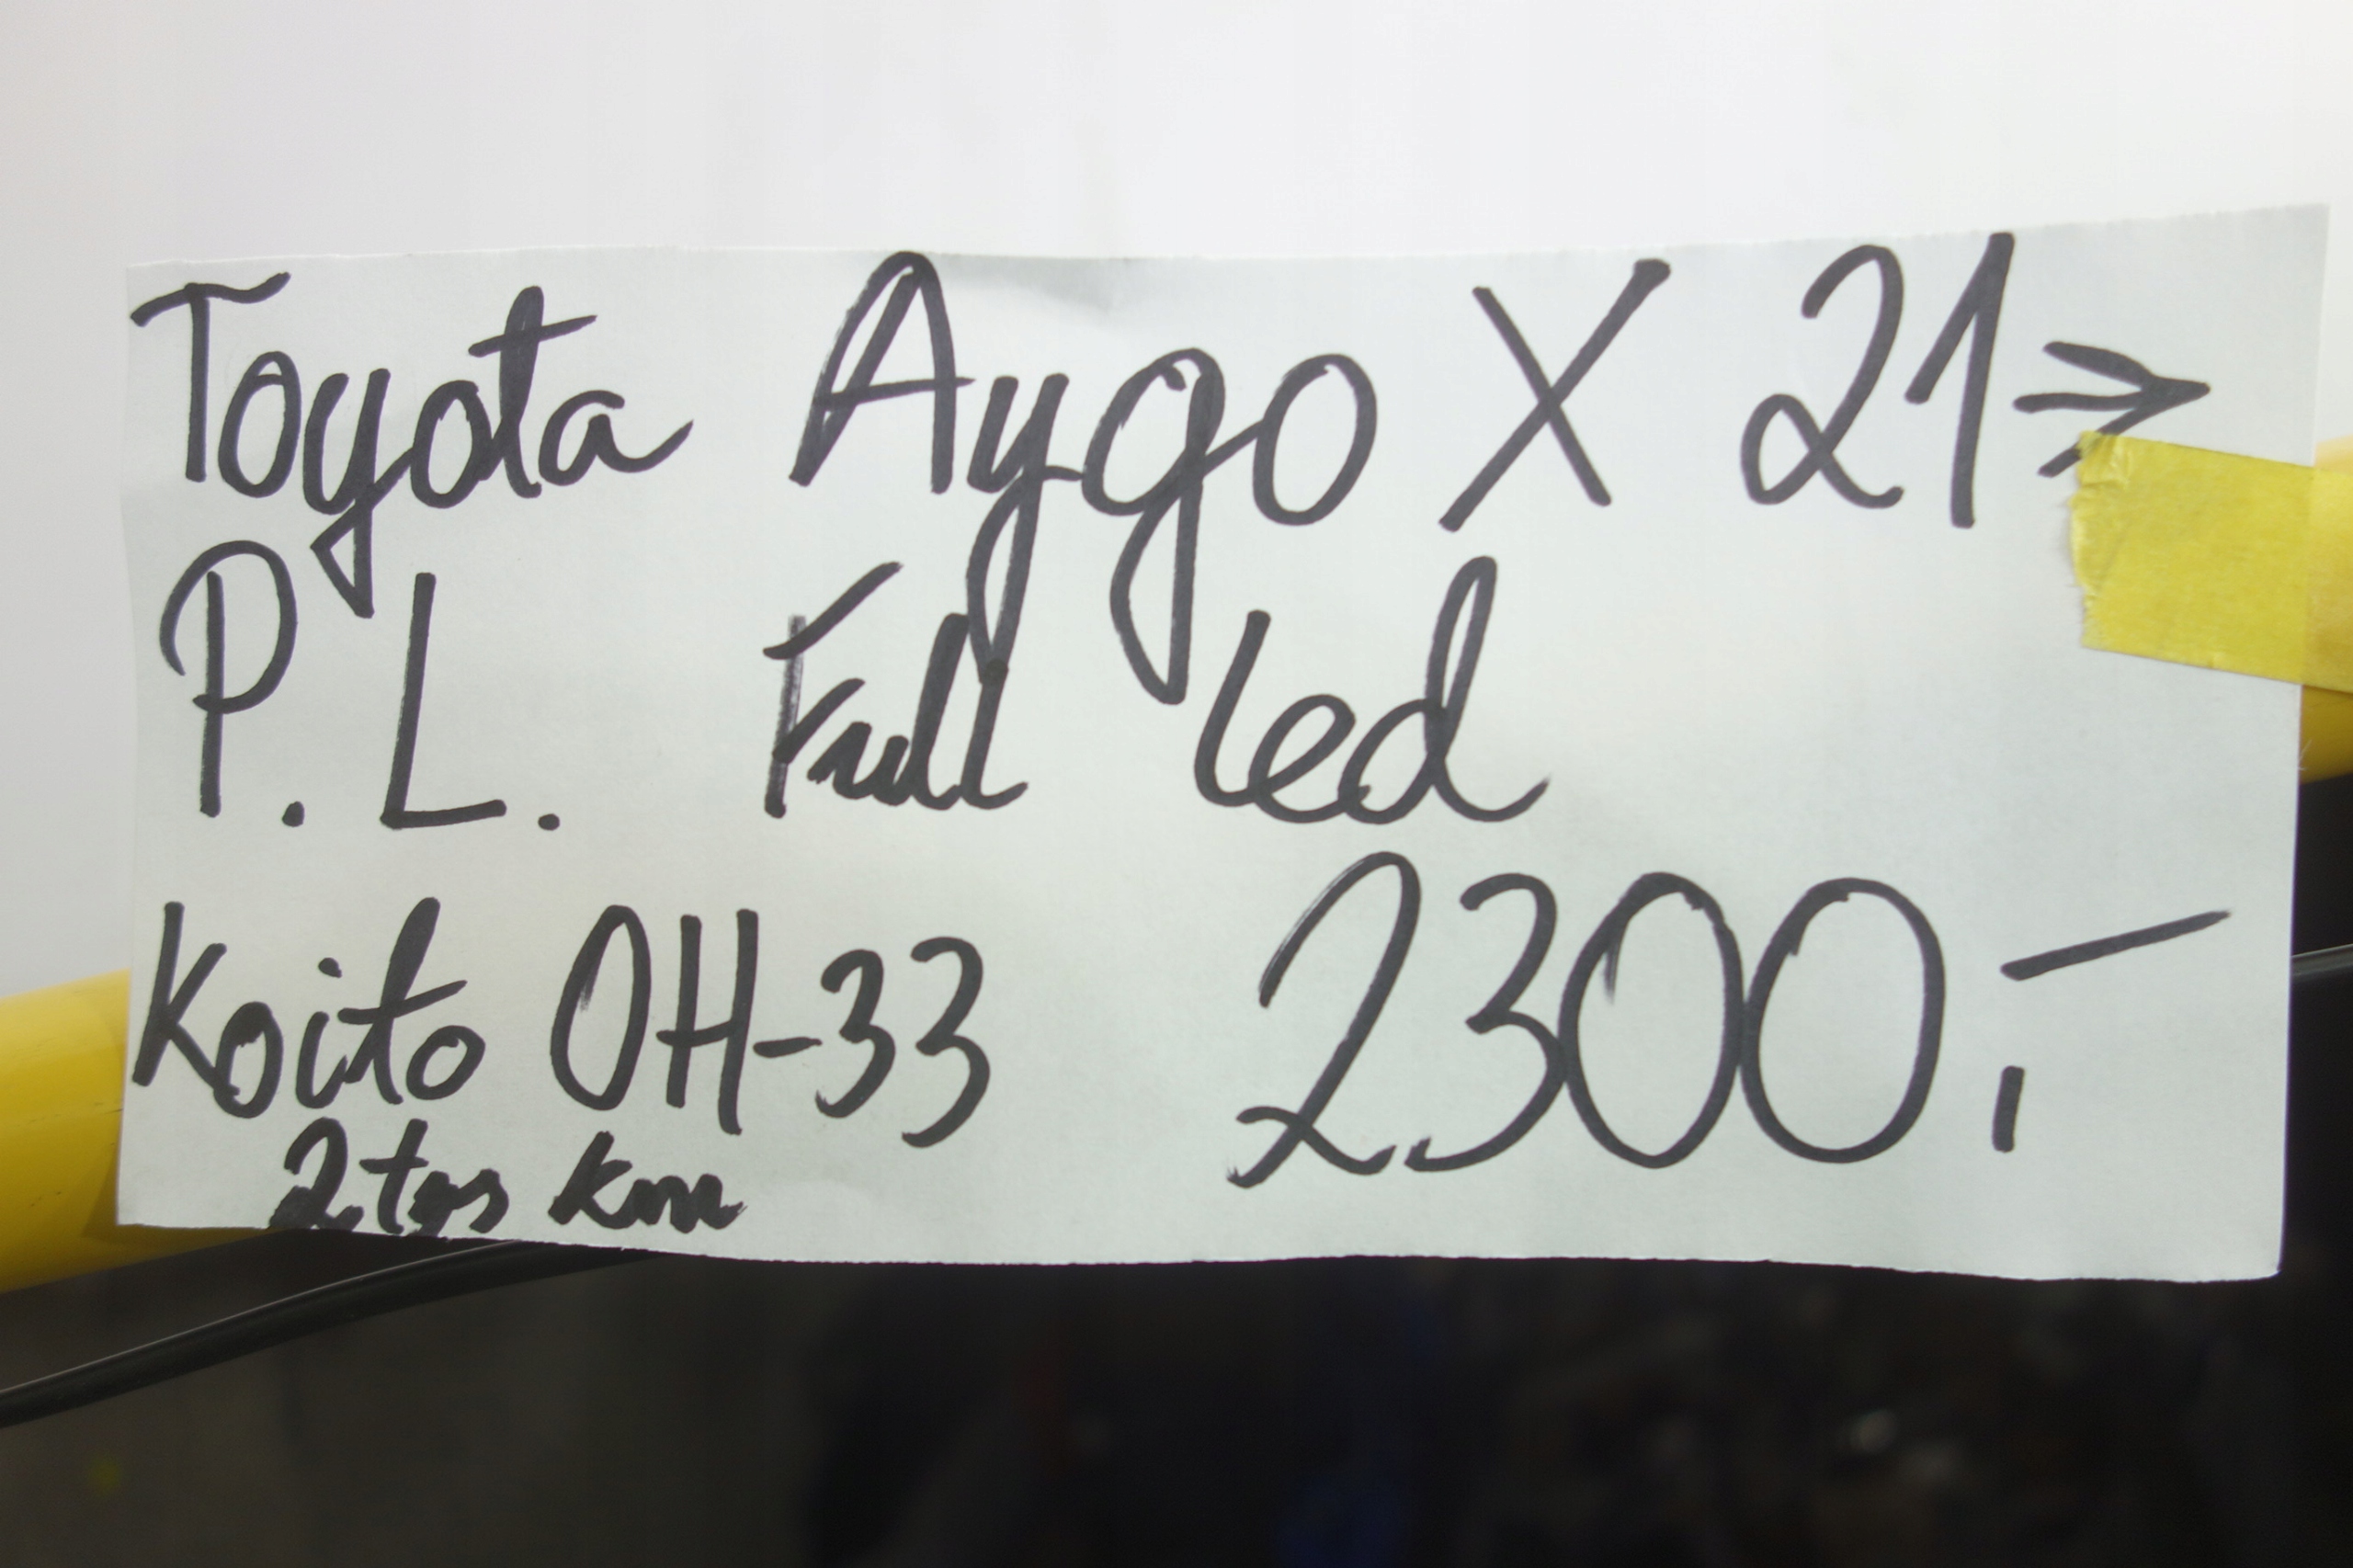 Toyota Aygo X 21→
P. L. Full led
Koito OH-33 2300.-
2 tys km